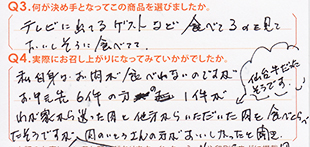 Q3.何が決め手となってこの商品を選びましたか。
テレビに出てる ゲストなど 食べてるのを見て
おいしそうに食べてて
Q4.実際にお召し上がりになってみていかがでしたか。
私自身はお肉が食べれないのですが
お中元先 6件の方の 1件が
わが家から送った肉と他方からいただいた肉と食べくらべ
たそうですが 肉のいとうさんの方がおいしかったと聞き
仙台牛だった
そうです。